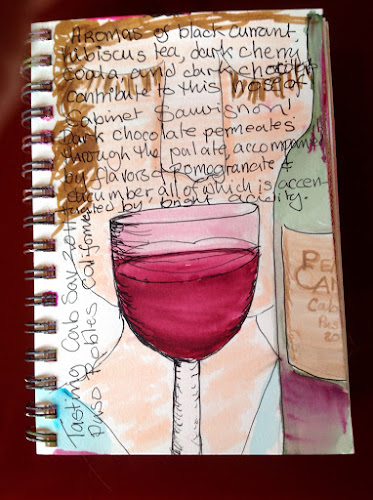 Aromas of black currant,
hibiscus tea, dark cherry
and dark
contribute to this nose of
Cabinet Sauvignon!
Dark chocolate permeates
through the palate accomp
by flavors of Pomogranate &
cucumber all of which is accen-
by bright acidity.
Tasting Cab Sav 2011
Paso Robles California
Cab